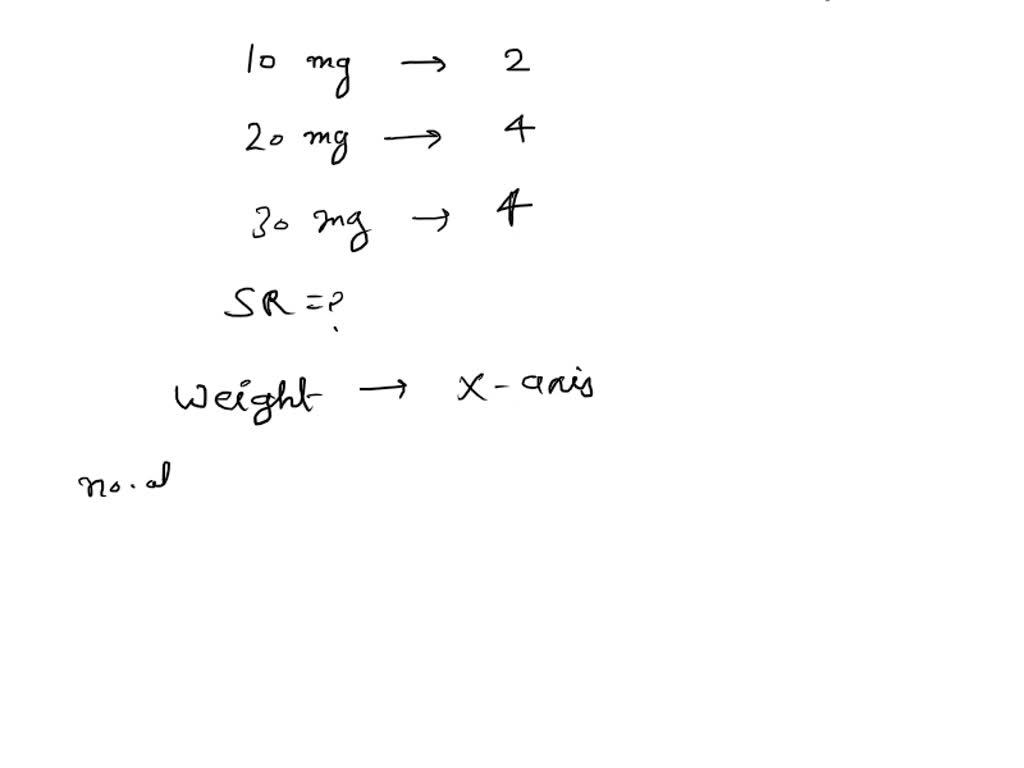 10 mg → 2
20 mg → 4
30 mg → 4
SR = ?
Weight → X-axis
no. of